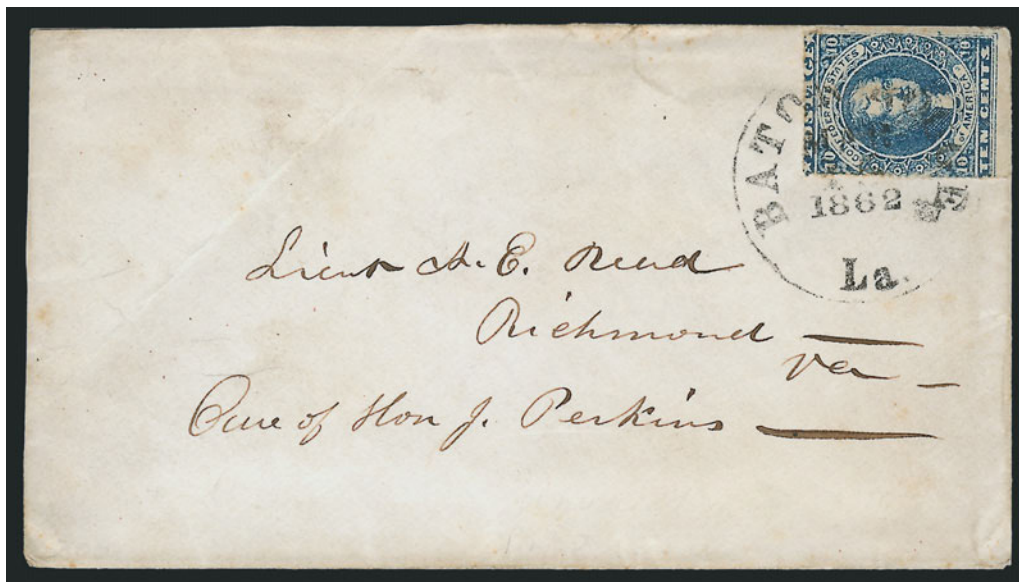 10 10
CONFEDERATE STATES
of AMERICA
POSTAGE
TEN CENTS
10 10
BATO
1862
La.
Lieut A. E. Read
Richmond
Va
Care of Hon J. Perkins